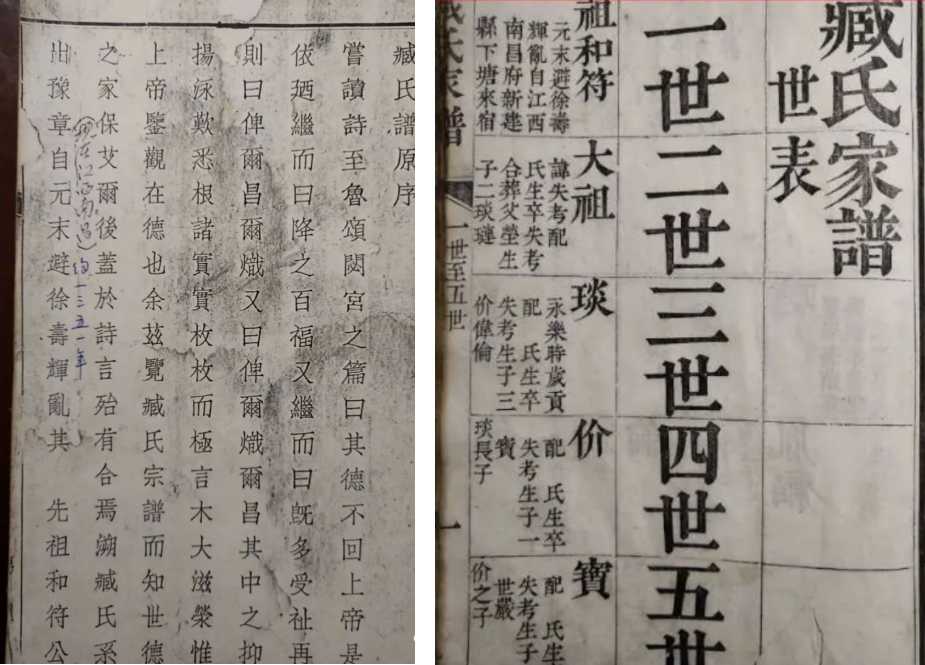 臧氏譜原序
嘗讀詩至魯頌閟宮之篇曰其德不回上帝是
依廼繼而曰降之百福又繼而曰旣多受祉再
則曰俾爾昌爾熾又曰俾爾熾爾昌其中之抑
揚泳歎悉根諸實實枚枚而極言木大滋榮惟
上帝鑒觀在德也余茲覽臧氏宗譜而知世德
之家保艾爾後蓋於詩言殆有合焉溯臧氏系
(現在江西南昌)約一三五一年
出豫章自元末避徐壽輝亂其 先祖和符公
臧氏家譜
世表
一世 二世 三世 四世 五世
祖和符
元末避徐壽
輝亂自江西
南昌府新建
縣下塘來宿
大祖
諱失考配
氏生卒失考
合葬父塋生
子二琰璉
琰
永樂時歲貢
配 氏生卒
失考生子三
价偉倫
价
配 氏生卒
失考生子一
寶
琰長子
寶
配 氏生
失考生子
世嚴
价之子
臧氏家譜
一世至五世
一